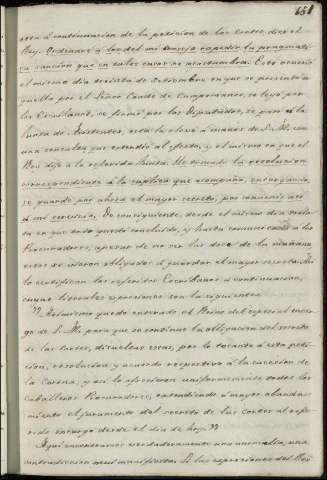 151
esta á continuacion de la peticion de las Cortes, dice el
Rey: Ordenaré á los del mi Consejo expedir la pragmatica
sancion que en tales casos se acostumbra. Esto ocurrió
el mismo dia treinta de Setiembre en que se presentó
aquella por el Señor Conde de Campomanes, se leyó por
los Escribanos, se firmó por los Diputados, se pasó á la
Junta de Asistentes, esta la elevó á manos de S. M. con
una consulta que extendió al efecto, y el mismo en que el
Rey dijo á la referida Junta: He tomado la resolucion
correspondiente á la suplica que acompaña, encargando
se guarde por ahora el mayor secreto, por convenir asi
á mi servicio. De consiguiente, desde el mismo dia treinta
en que todo quedó concluido, y hasta comunicado á los
Procuradores, apesar de no ser las doce de la mañana,
estos se vieron obligados á guardar el mayor secreto. Asi
lo certifican los referidos Escribanos á continuacion,
cuyas literales expresiones son las siguientes
"Asimismo quedó enterado el Reino del especial encargo
de S. M. para que se continue la obligacion del secreto
de las Cortes, disueltas estas, por lo tocante á esta peticion,
resolucion y acuerdo respectivo á la sucesion de
la Corona, y asi lo ofrecieron uniformemente todos los
Caballeros Procuradores, extendiendo á mayor abundamiento
el juramento del secreto de las Cortes al referido
encargo desde el dia de hoy."
Aqui encontramos verdaderamente una anomalia, una
contradiccion manifiesta. Si las expresiones del Rey